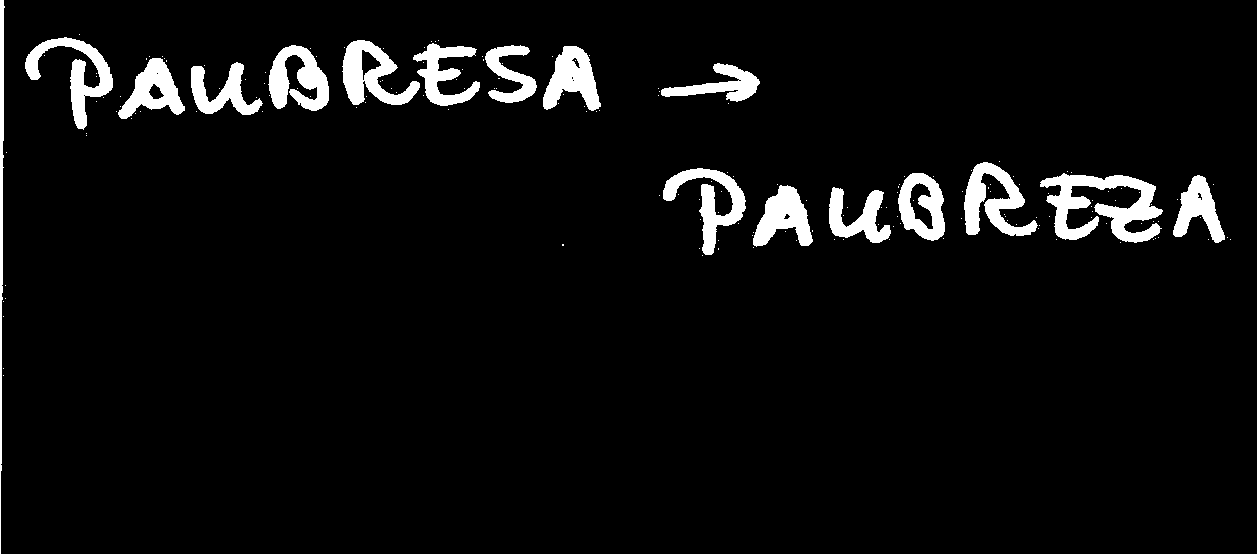 PAUBRESA →
PAUBREZA